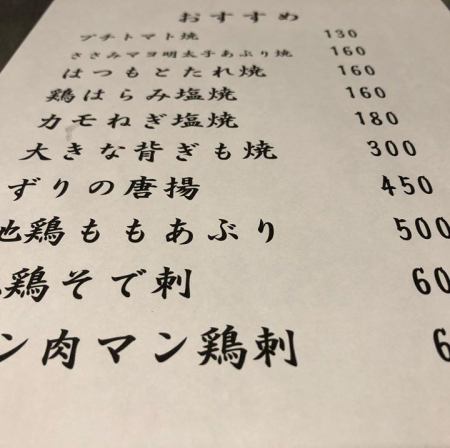 おすすめ
プチトマト焼 130
ささみマヨ明太子あぶり焼 160
はつもとたれ焼 160
鶏はらみ塩焼 160
カモねぎ塩焼 180
大きな背ぎも焼 300
ずりの唐揚 450
地鶏ももあぶり 500
鶏そで刺 60
ン肉マン鶏刺 6